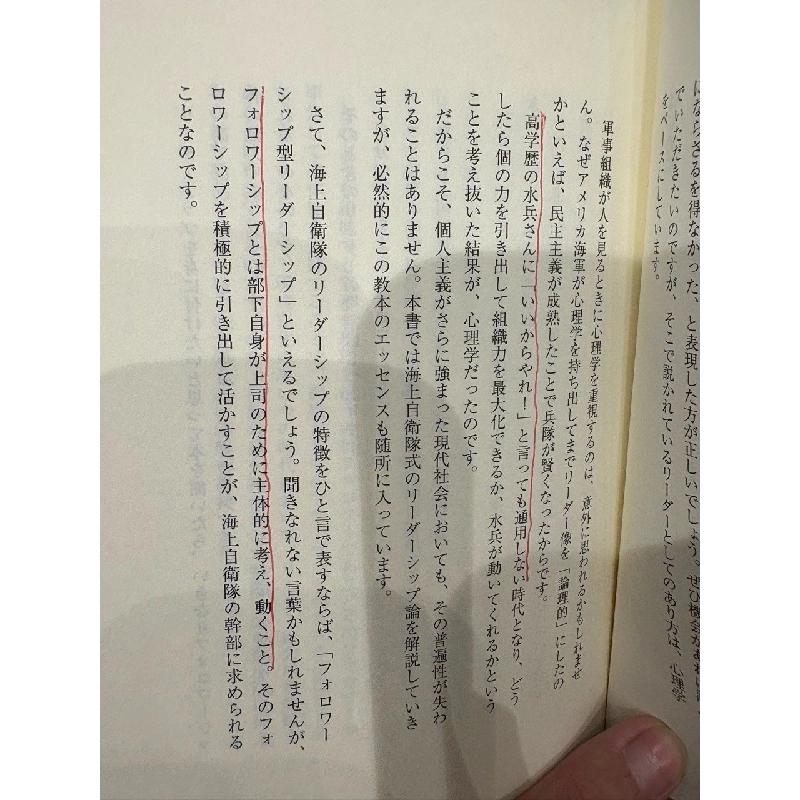 にならざるを得なかった、と表現した方が正しいでしょう。ぜひ機会があれば
でいただきたいのですが、そこで説かれているリーダーとしてのあり方は、心理学
をベースにしています。
軍事組織が人を見るときに心理学を重視するのは、意外に思われるかもしれませ
ん。なぜアメリカ海軍が心理学を持ち出してまでリーダー像を「論理的」にしたの
かといえば、民主主義が成熟したことで兵隊が賢くなったからです。
高学歴の水兵さんに「いいからやれ！」と言っても通用しない時代となり、どう
したら個の力を引き出して組織力を最大化できるか、水兵が動いてくれるかという
ことを考え抜いた結果が、心理学だったのです。
だからこそ、個人主義がさらに強まった現代社会においても、その普遍性が失わ
れることはありません。本書では海上自衛隊式のリーダーシップ論を解説していき
ますが、必然的にこの教本のエッセンスも随所に入っています。
さて、海上自衛隊のリーダーシップの特徴をひと言で表すならば、「フォロワー
シップ型リーダーシップ」といえるでしょう。聞きなれない言葉かもしれませんが、
フォロワーシップとは部下自身が上司のために主体的に考え、動くこと。そのフォ
ロワーシップを積極的に引き出して活かすことが、海上自衛隊の幹部に求められる
ことなのです。